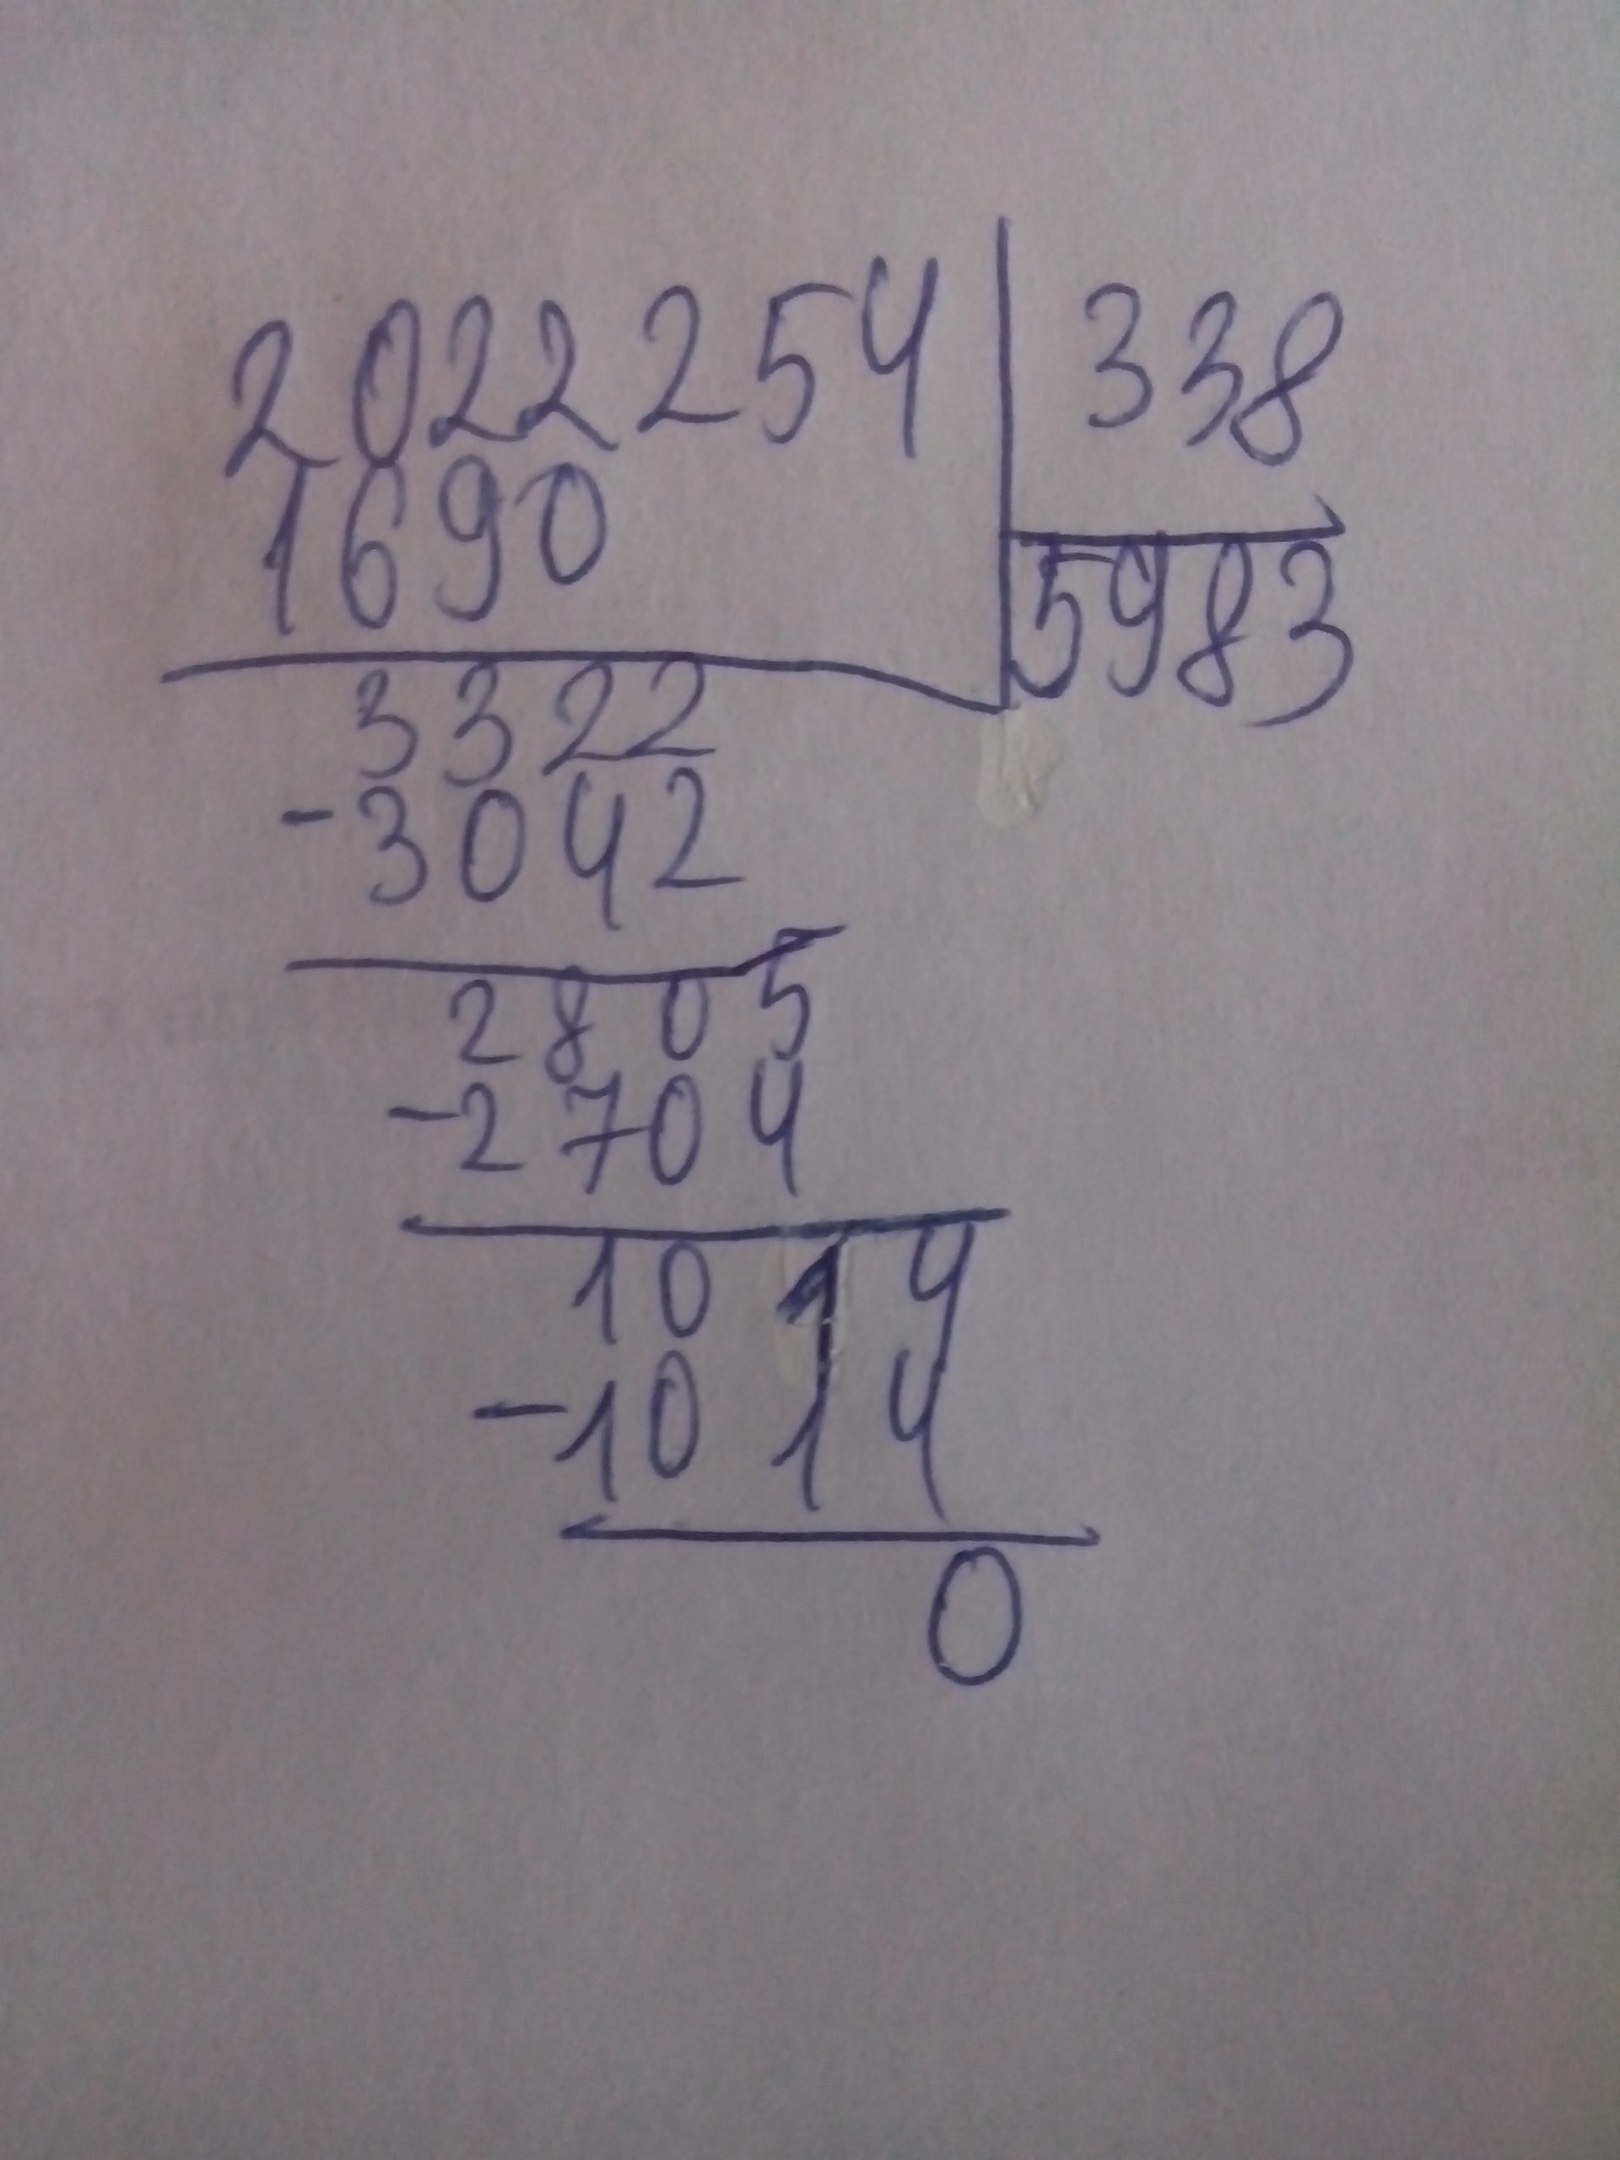 2022254 338
1690 5983
3322
-3042
2805
-2704
1014
-1014
0